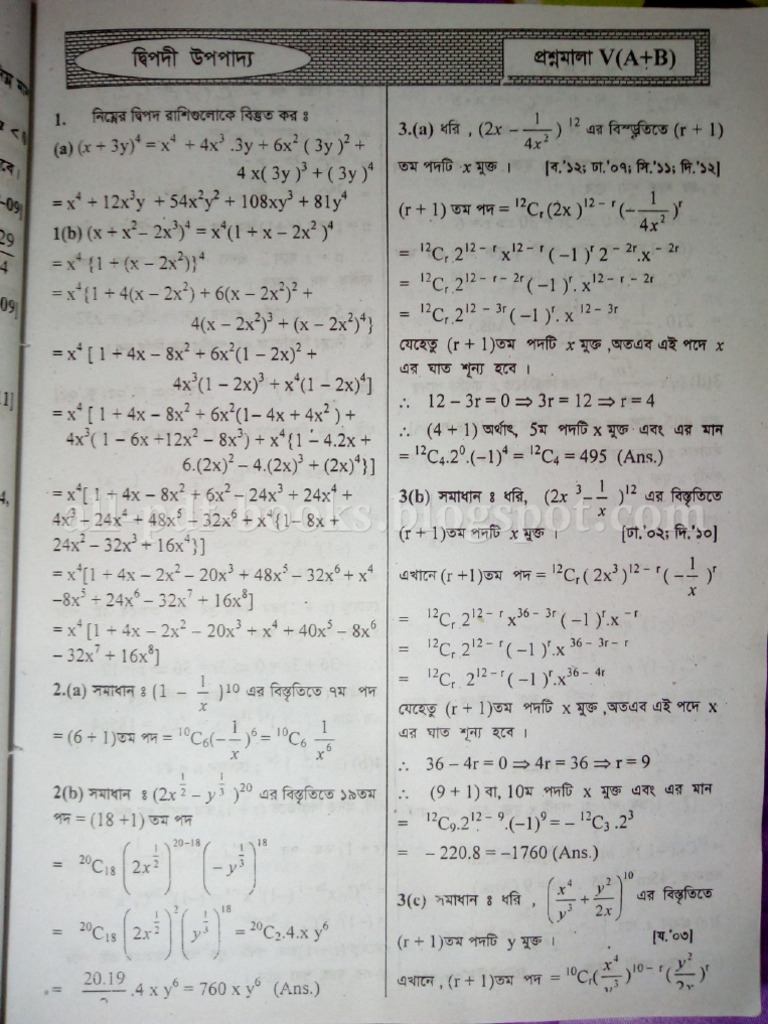 দ্বিপদী উপপাদ্য
প্রশ্নমালা V(A+B)
1. নিম্নের দ্বিপদ রাশিগুলোকে বিস্তৃত কর ঃ
(a) (x + 3y)⁴ = x⁴ + 4x³ .3y + 6x² ( 3y )² +
4 x( 3y )³ + ( 3y )⁴
= x⁴ + 12x³y + 54x²y² + 108xy³ + 81y⁴
1(b) (x + x² – 2x³)⁴ = x⁴(1 + x – 2x² )⁴
= x⁴ {1 + (x – 2x²)}⁴
= x⁴{1 + 4(x – 2x²) + 6(x – 2x²)² +
4(x – 2x²)³ + (x – 2x²)⁴}
= x⁴ [ 1 + 4x – 8x² + 6x²(1 – 2x)² +
4x³(1 – 2x)³ + x⁴(1 – 2x)⁴]
= x⁴ [ 1 + 4x – 8x² + 6x²(1– 4x + 4x² ) +
4x³( 1 – 6x +12x² – 8x³) + x⁴{1 – 4.2x +
6.(2x)² – 4.(2x)³ + (2x)⁴}]
= x⁴[ 1 + 4x – 8x² + 6x² – 24x³ + 24x⁴ +
4x³ – 24x⁴ + 48x⁵ – 32x⁶ + x⁴{1– 8x +
24x² – 32x³ + 16x⁴}]
= x⁴[1 + 4x – 2x² – 20x³ + 48x⁵ – 32x⁶ + x⁴
–8x⁵ + 24x⁶ – 32x⁷ + 16x⁸]
= x⁴ [1 + 4x – 2x² – 20x³ + x⁴ + 40x⁵ – 8x⁶
– 32x⁷ + 16x⁸]
2.(a) সমাধান ঃ (1 – 1/x )¹⁰ এর বিস্তৃতিতে ৭ম পদ
= (6 + 1)তম পদ = ¹⁰C₆(– 1/x )⁶ = ¹⁰C₆ 1/x⁶
2(b) সমাধান ঃ (2x^(1/2) – y^(1/3) )²⁰ এর বিস্তৃতিতে ১৯তম
পদ = (18 +1) তম পদ
= ²⁰C₁₈ (2x^(1/2))^(20–18) (– y^(1/3))¹⁸
= ²⁰C₁₈ (2x^(1/2))² (y^(1/3))¹⁸ = ²⁰C₂.4.x y⁶
= 20.19/2 .4 x y⁶ = 760 x y⁶ (Ans.)
3.(a) ধরি , (2x – 1/4x² )¹² এর বিস্তৃতিতে (r + 1)
তম পদটি x মুক্ত । [ব.'১২; ঢা.'০৭; সি.'১১; দি.'১২]
(r + 1) তম পদ = ¹²Cᵣ(2x )^(12 – r) (– 1/4x² )^r
= ¹²Cᵣ 2^(12 – r) x^(12 – r) ( – 1 )^r 2^(– 2r).x^(– 2r)
= ¹²Cᵣ 2^(12 – r – 2r) (– 1 )^r. x^(12 – r – 2r)
= ¹²Cᵣ.2^(12 – 3r) ( – 1 )^r. x^(12 – 3r)
যেহেতু (r + 1)তম পদটি x মুক্ত ,অতএব এই পদে x
এর ঘাত শূন্য হবে ।
∴ 12 – 3r = 0 ⇒ 3r = 12 ⇒ r = 4
∴ (4 + 1) অর্থাৎ, 5ম পদটি x মুক্ত এবং এর মান
= ¹²C₄.2⁰.(–1)⁴ = ¹²C₄ = 495 (Ans.)
3(b) সমাধান ঃ ধরি, (2x ³– 1/x )¹² এর বিস্তৃতিতে
(r + 1)তম পদটি x মুক্ত । [ঢা.'০২; দি.'১০]
এখানে (r +1)তম পদ = ¹²Cᵣ( 2x³ )^(12 – r) (– 1/x )^r
= ¹²Cᵣ 2^(12 – r) x^(36 – 3r) ( – 1 )^r.x^(–r)
= ¹²Cᵣ 2^(12 – r) ( – 1 )^r.x^(36 – 3r – r)
= ¹²Cᵣ 2^(12 – r) ( – 1 )^r.x^(36 – 4r)
যেহেতু (r + 1)তম পদটি x মুক্ত ,অতএব এই পদে x
এর ঘাত শূন্য হবে ।
∴ 36 – 4r = 0 ⇒ 4r = 36 ⇒ r = 9
∴ (9 + 1) বা, 10ম পদটি x মুক্ত এবং এর মান
= ¹²C₉.2^(12 – 9).(–1)⁹ = – ¹²C₃ .2³
= – 220.8 = –1760 (Ans.)
3(c) সমাধান ঃ ধরি , (x⁴/y³ + y²/2x)¹⁰ এর বিস্তৃতিতে
(r + 1)তম পদটি y মুক্ত । [য.'০৩]
এখানে , (r + 1)তম পদ = ¹⁰Cᵣ( x⁴/y³ )^(10 – r) ( y²/2x )^r